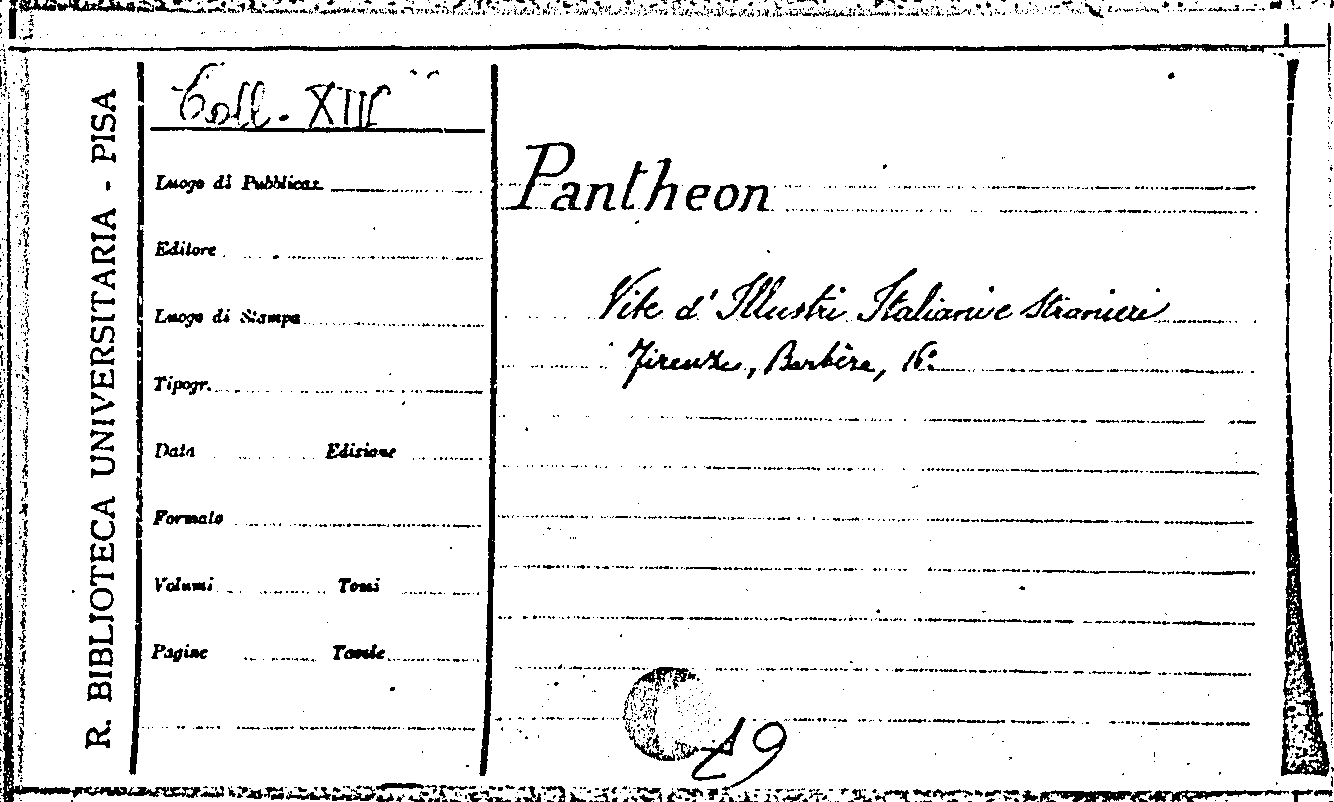 R. BIBLIOTECA UNIVERSITARIA - PISA
Coll. XIII
Luogo di Pubblicaz.
Editore
Luogo di Stampa
Tipogr.
Data Edizione
Formato
Volumi Tomi
Pagine Tavole
Pantheon
Vite d'Illustri Italiani e Stranieri
Firenze, Barbèra, 16°